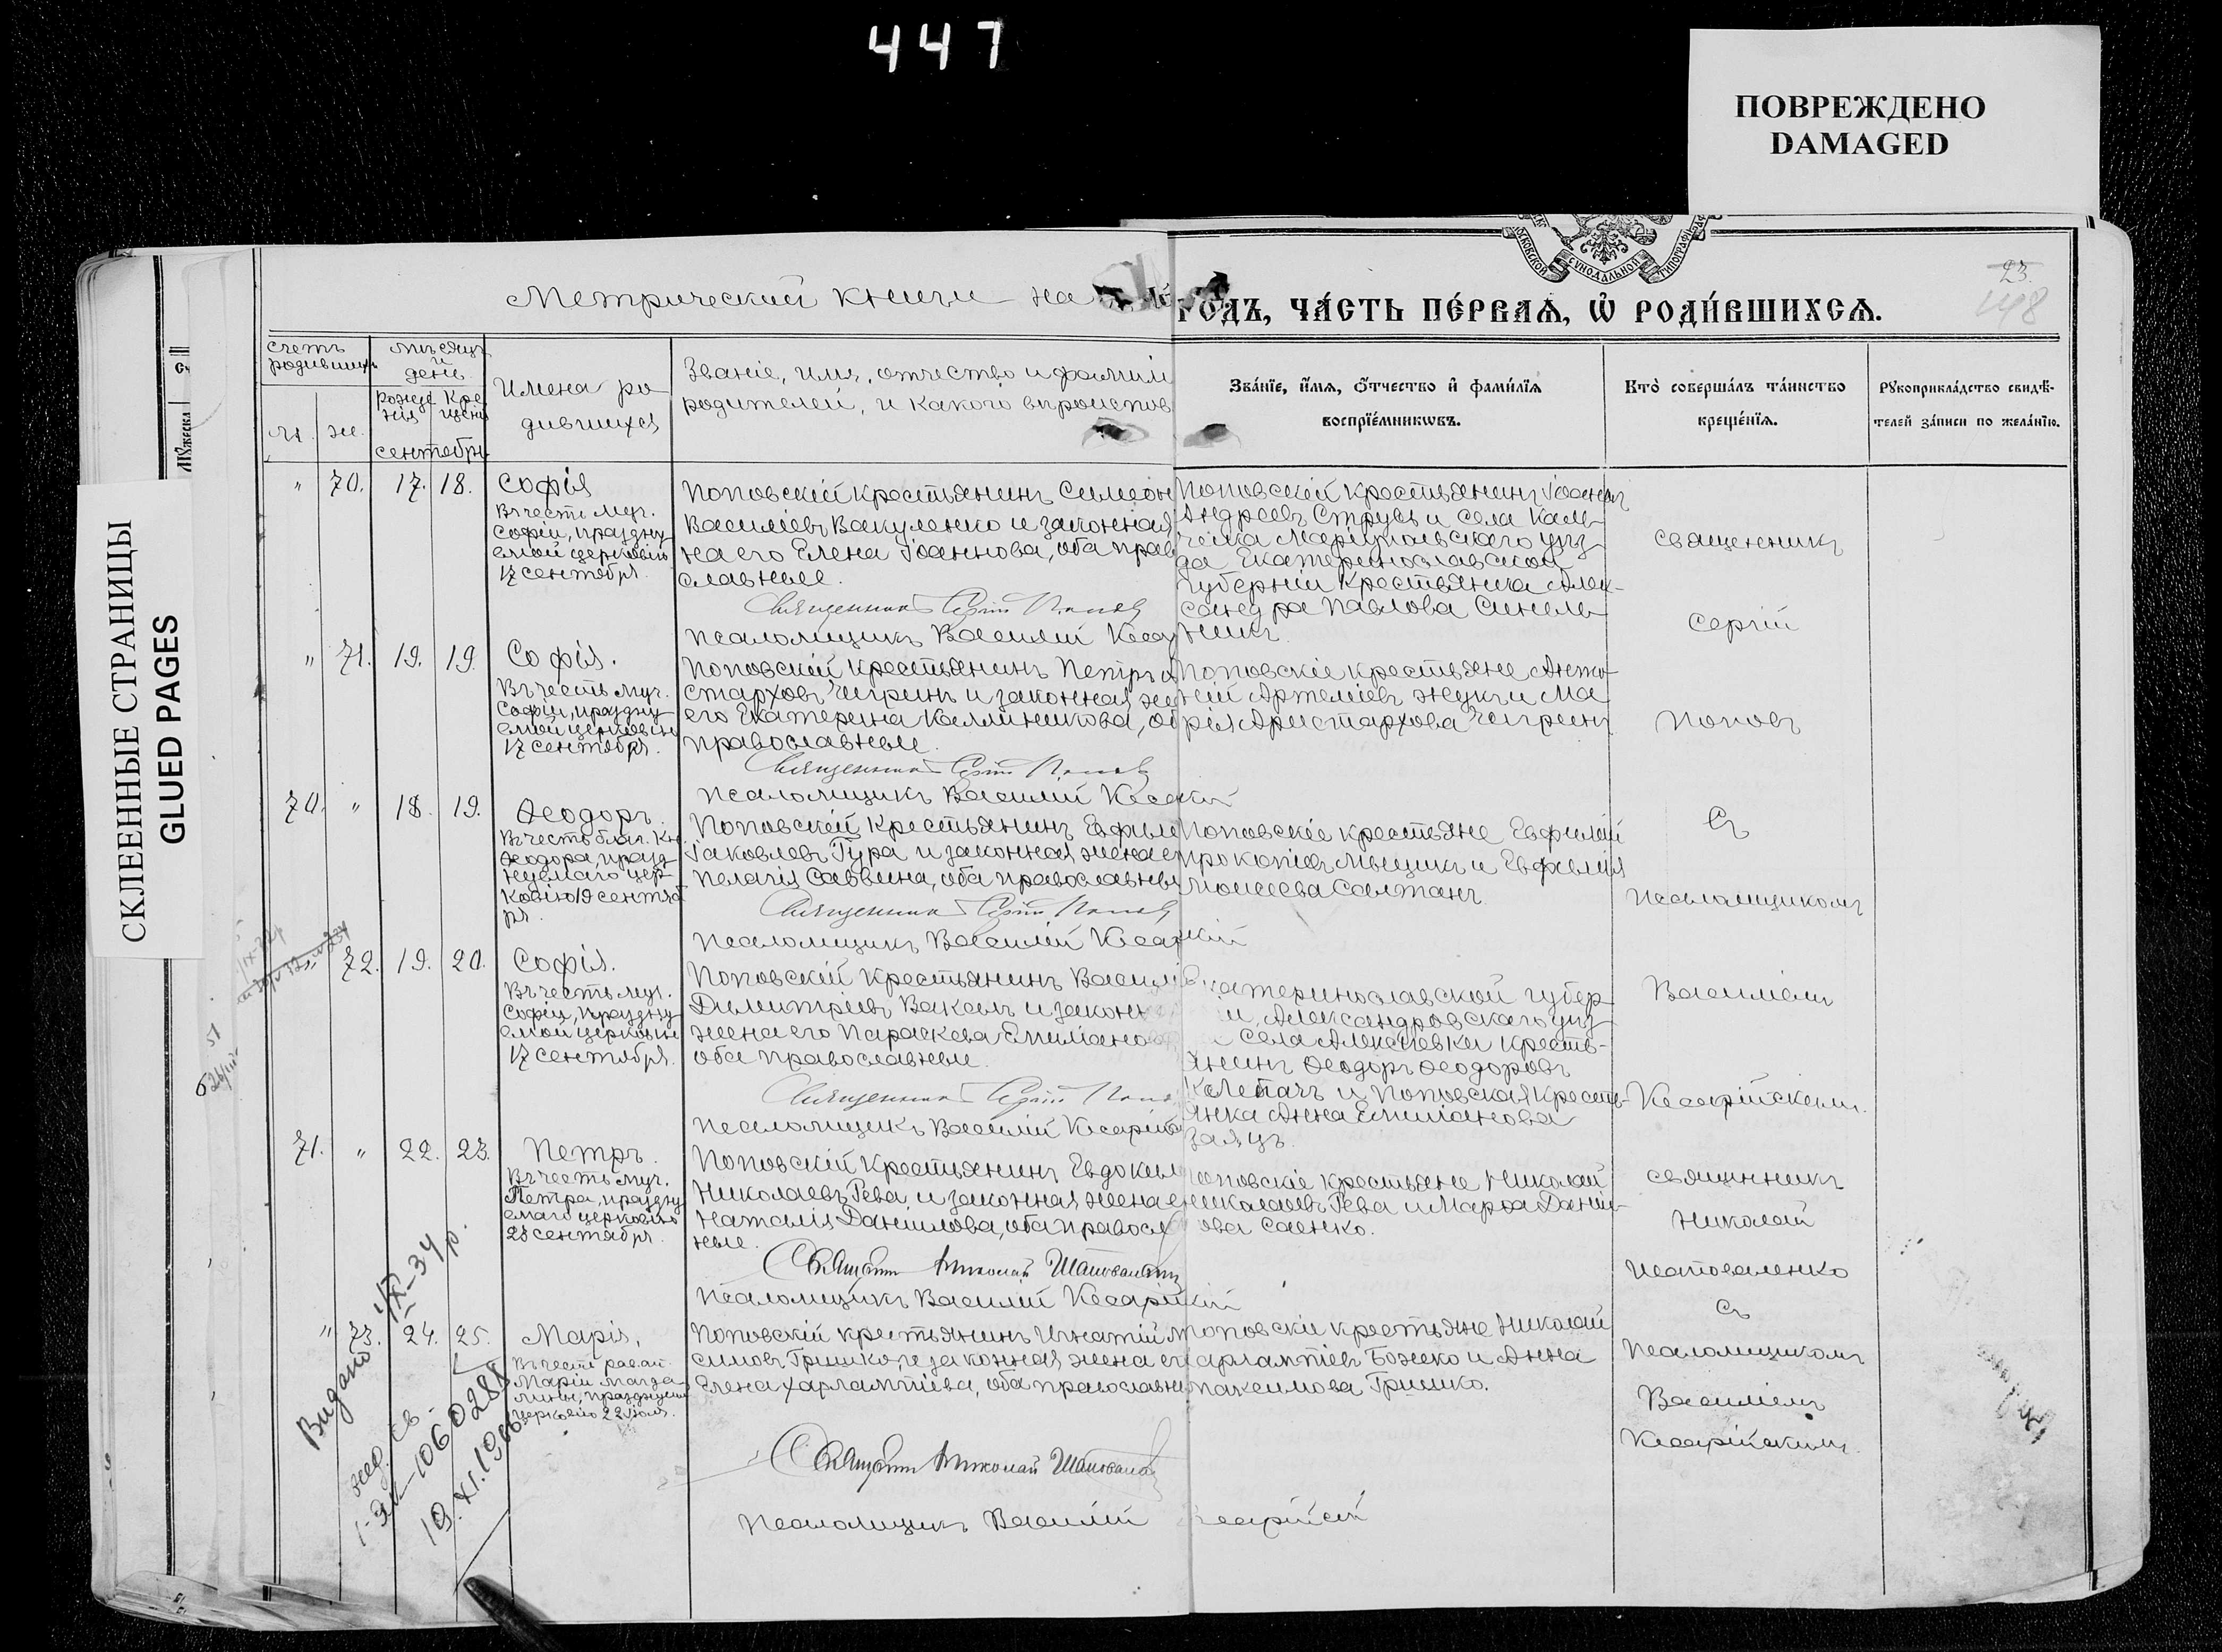 447
ПОВРЕЖДЕНО
DAMAGED
СКЛЕЕННЫЕ СТРАНИЦЫ
GLUED PAGES
МОСКОВСКОЙ СѴНОДАЛЬНОЙ ТИПОГРАФ
23.
Метрической книги на
годъ, ча́сть пе́рваѧ, ѿ роди́вшихсѧ.
счетъ родившихъ
мѣсяцъ и день
рожденія
Крещенія
м.
же.
сентябрь
Имена родившихся
Званіе, имя, отчество и фамилі
родителей, и какого вѣроиспов
Зва́нїе, и҆́мѧ, ѻ҆́тчество и҆ фами́лїѧ
воспрїе́мникѡвъ.
Кто̀ соверша́лъ та́инство
креще́нїѧ.
Рꙋкоприкла́дство свидѣ́-
телей за́писи по жела́нїю.
" 70. 17. 18.
Софія
Въ честь муч.
Софіи, праздну
емой церковію
17 сентября.
Поповскій крестьянинъ Симеон
Василіевъ Вакуленко и законная
на его Елена Іоаннова, оба прав
славные.
Священникъ Сергій Попов
Псаломщикъ Василій Кеса
Поповскій крестьянинъ Іоаннъ
Андреевъ Струвъ и села Каль
чика Маріупольскаго уѣз
да Екатеринославской
губерніи крестьянка Алек-
сандра Павлова Синель
никъ.
" 71. 19. 19.
Софія.
Въ честь муч.
Софіи, праздну
емой церковію
17 сентября.
Поповскій крестьянинъ Петръ А
старховъ Чигринъ и законная же
его Екатерина Каллиникова, об
православные.
Священникъ Сергій Попов
Псаломщикъ Василій Кесарій
Поповскіе крестьяне Анто
ній Артеміевъ Жукъ и Ма
рія Аристархова Чигринъ
70. " 18. 19.
Ѳеодоръ.
Въ честь благ. Кн.
Ѳеодора, празд
нуемаго цер
ковію 19 сентяб
ря.
Поповскій крестьянинъ Евфим
Іаковлевъ Гура и законная жена е
Пелагія Саввина, оба православны
Священникъ Сергій Попов
Псаломщикъ Василій Кесарскій
Поповскіе крестьяне Евфимій
Прокопіевъ Мыщикъ и Евфимія
Моисеева Салтанъ
72. 19. 20.
Софія.
Въ честь муч.
Софіи, праздну
емой церковію
17 сентября.
Поповскій крестьянинъ Васил
Димитріевъ Вакалъ и законн
жена его Параскева Емиліано
оба православные.
Священникъ Сергій Попо
Псаломщикъ Василій Кесарійск
Екатеринославской губер
и, Александровскаго уѣз
села Алексѣевки кресть-
янинъ Ѳеодоръ Ѳеодоровъ
Колепачъ и Поповская кресть-
янка Анна Емиліанова
Заяцъ.
71. " 22. 23.
Петръ.
Въ честь муч.
Петра, праздну
емаго церковію
23 сентября.
Поповскій крестьянинъ Евдоким
Николаевъ Рева и законная жена е
Наталія Даніилова, оба правосл
ные.
Священ Николай Шаповаленк
Псаломщикъ Василій Кесарійскій
оповскіе крестьяне Николай
Николаевъ Рева и Марѳа Даніи-
ова Саенко.
" 73. 24. 25.
Марія.
Въ честь равноап.
Маріи Магда-
лины, празднуемой
церковію 22 іюля.
Поповскій крестьянинъ Игнатій М
симовъ Гришко, и законная жена ег
Елена Харлампіева, оба православн
Священ Николай Шаповал
Псаломщикъ Василій Кесарійскій
оповскіе крестьяне Николай
арлампіевъ Божко и Анна
Максимова Гришко.
Священникъ
Сергій
Поповъ
Съ
Псаломщикомъ
Василіемъ
Кесарійскимъ.
священникъ
Николай
Шаповаленко
Съ
Псаломщикомъ
Василіемъ
Кесарійскимъ.
Видано
IX-34 р.
19.XI.1966